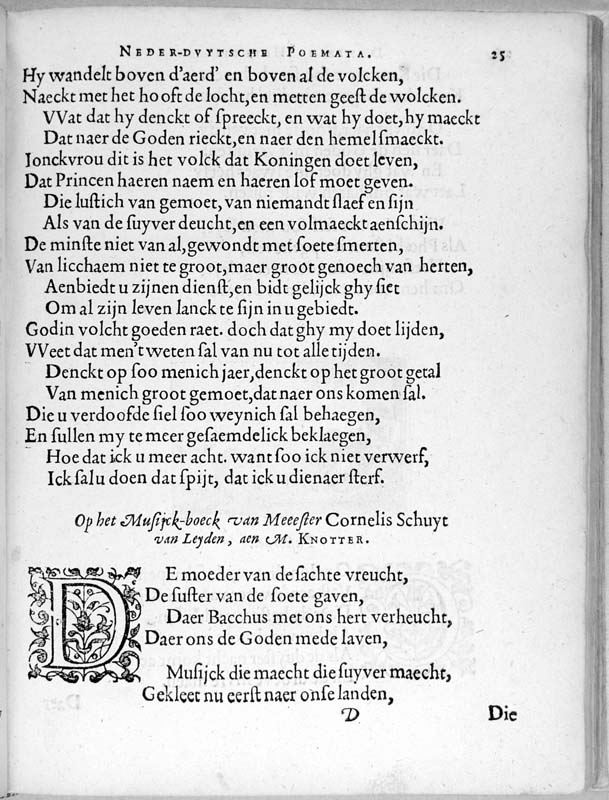 NEDER-DVYTSCHE POEMATA. 25
Hy wandelt boven d'aerd' en boven al de volcken,
Naeckt met het hooft de locht, en metten geeſt de wolcken.
VVat dat hy denckt of ſpreeckt, en wat hy doet, hy maeckt
Dat naer de Goden rieckt, en naer den hemel ſmaeckt.
Jonckvrou dit is het volck dat Koningen doet leven,
Dat Princen haeren naem en haeren lof moet geven.
Die luſtich van gemoet, van niemandt ſlaef en ſijn
Als van de ſuyver deucht, en een volmaeckt aenſchijn.
De minſte niet van al, gewondt met ſoete ſmerten,
Van licchaem niet te groot, maer groot genoech van herten,
Aenbiedt u zijnen dienſt, en bidt gelijck ghy ſiet
Om al zijn leven lanck te ſijn in u gebiedt.
Godin volcht goeden raet. doch dat ghy my doet lijden,
VVeet dat men't weten ſal van nu tot alle tijden.
Denckt op ſoo menich jaer, denckt op het groot getal
Van menich groot gemoet, dat naer ons komen ſal.
Die u verdoofde ſiel ſoo weynich ſal behaegen,
En ſullen my te meer geſaemdelick beklaegen,
Hoe dat ick u meer acht. want ſoo ick niet verwerf,
Ick ſal u doen dat ſpijt, dat ick u dienaer ſterf.
Op het Muſijck-boeck van Meeeſter Cornelis Schuyt
van Leyden, aen M. KNOTTER.
DE moeder van de ſachte vreucht,
De ſuſter van de ſoete gaven,
Daer Bacchus met ons hert verheucht,
Daer ons de Goden mede laven,
Muſijck die maecht die ſuyver maecht,
Gekleet nu eerſt naer onſe landen,
D Die